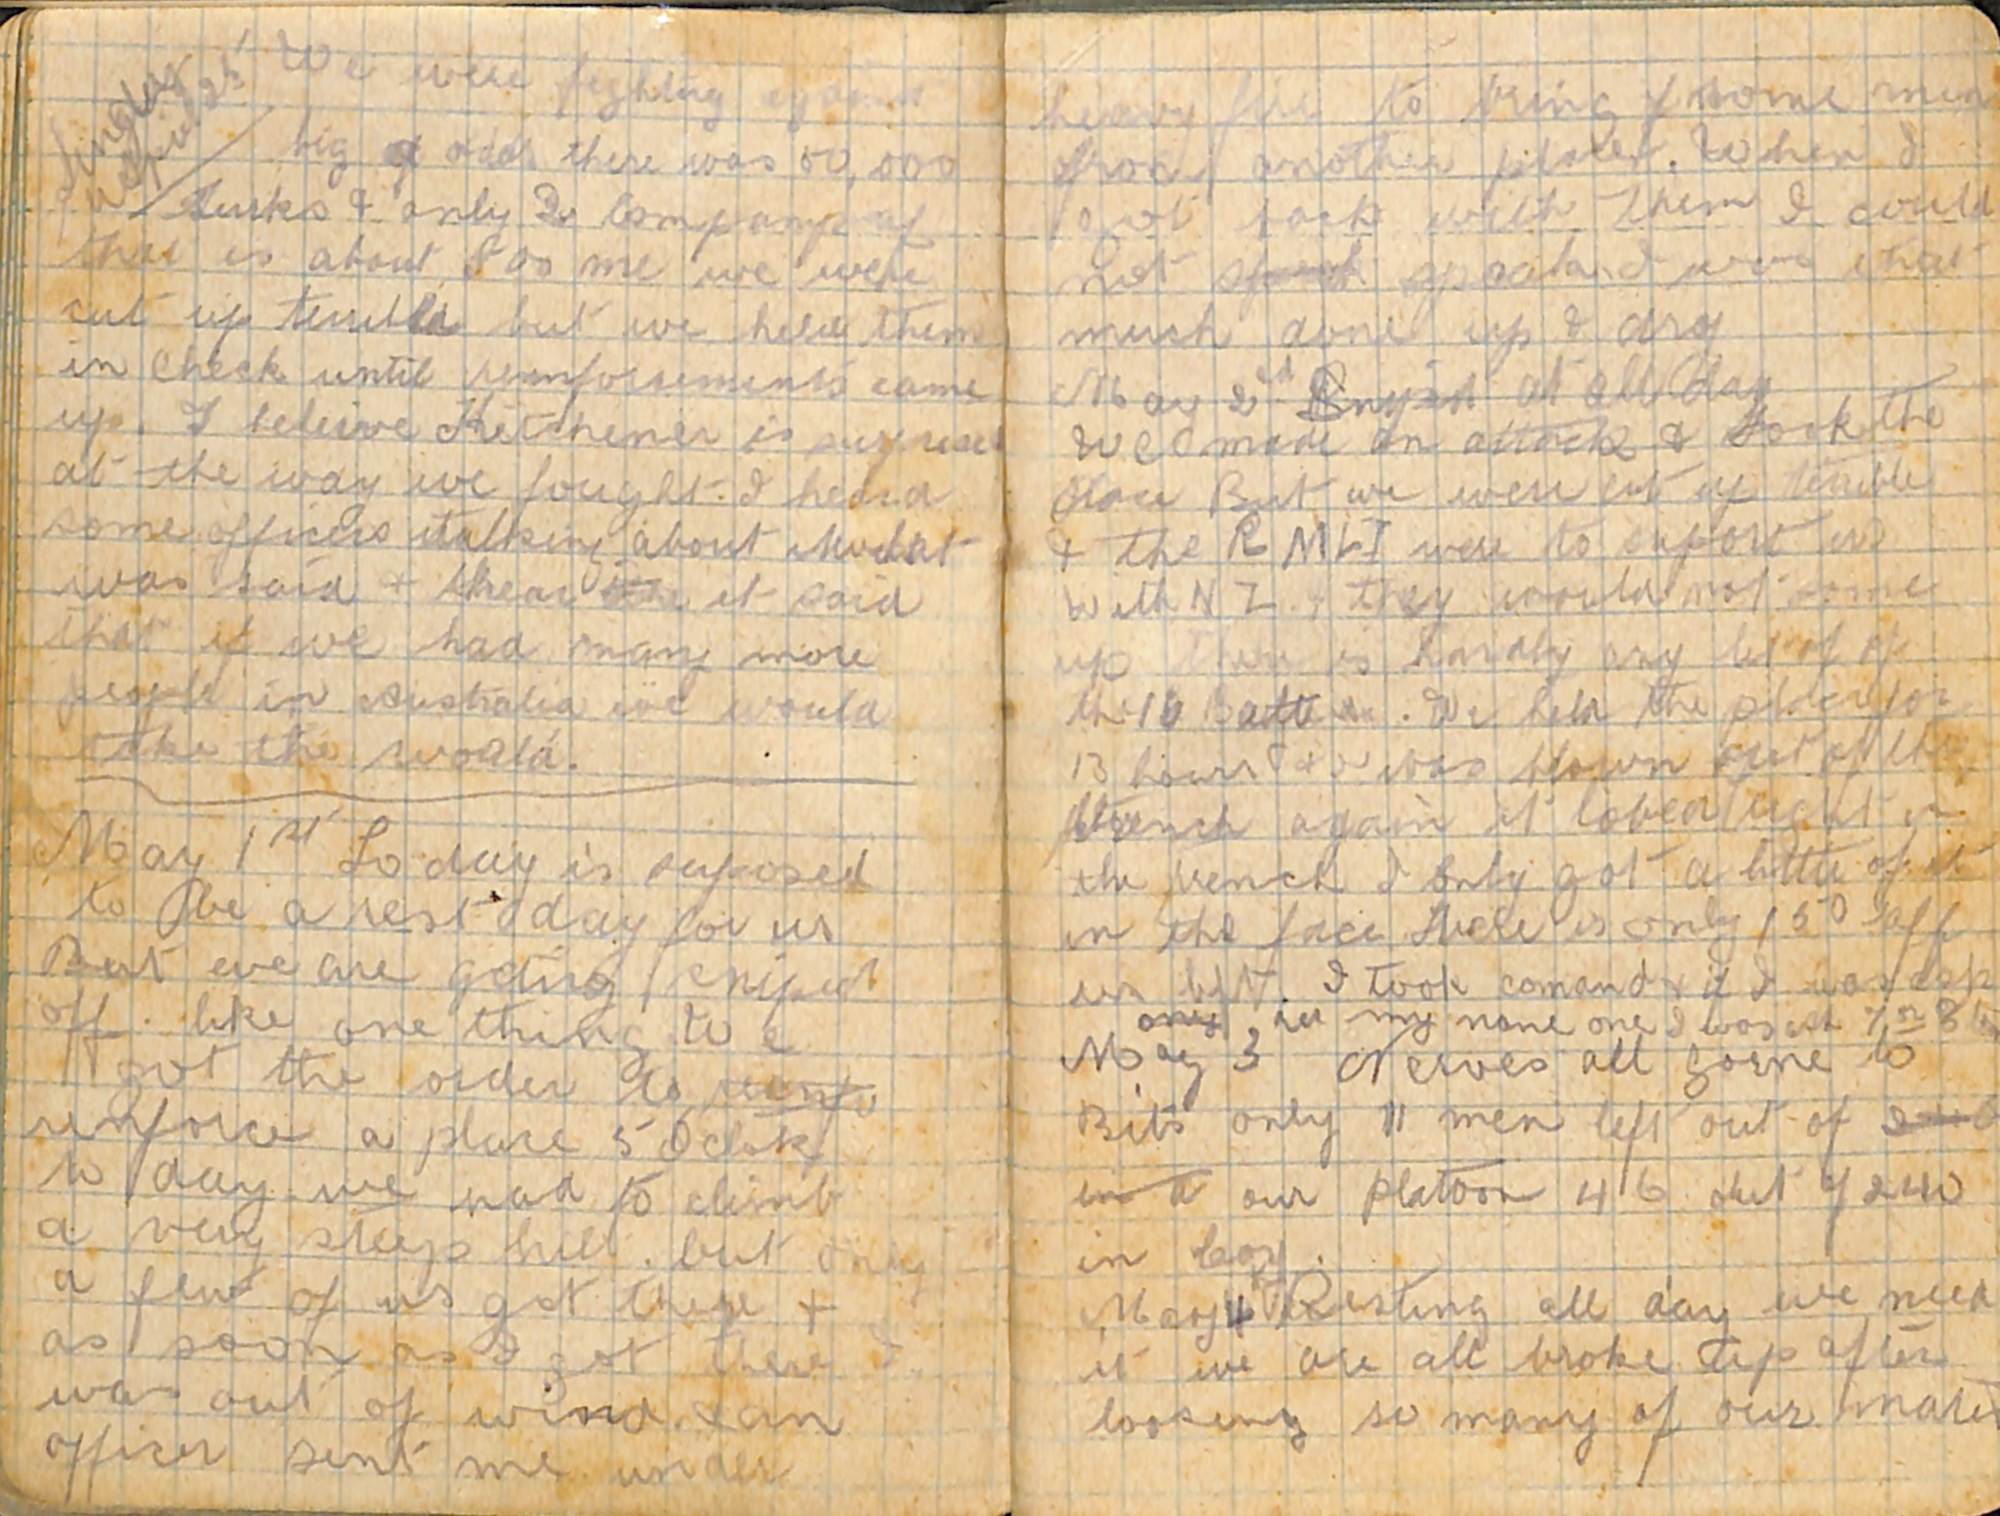 Sunday
April 25'
We were fighting against
big odds there was 00,000
Turks & only 2 Company of
that is about 500 me we were
cut up terrible but we held them
in check until reinforsements came
up. I beleive Kitchener is surprised
at the way we fought. I heard
some officers talking about what
was said & I hear it said
that if we had many more
people in Australia we would
take the world.
May 1st To day is suposed
to be a rest day for us
But we are geting sniped
off like one thing We
got the order to
reinforce a place 5 Oclok
to day we had to climb
a very steep hill. but only
a few of us got there &
as soon as I got there I
was out of wind & an
officer sent me under
heavy fire to bring some men
from another place. When I
got back with them I could
not speak I was that
much done up & dry
May 2nd at all day
We made an attack & took the
place But we were cut up terrible
& the R M L I were to suport us
with N Z & they would not come
up there is hardly any left of
the 16 Batt. We held the place for
13 hours & I was blown out of the
trench again it lobed right in
the trench I only got a little of it
in the face there is only 150 off
us left. I took comand I was
only my none one I was 7 or 8
May 3 Nerves all gorne to
Bits only 11 men left out of
our platoon 46 out of 240
in Coy.
May 4th Resting all day we need
it we are all broke up after
loosing so many of our mates